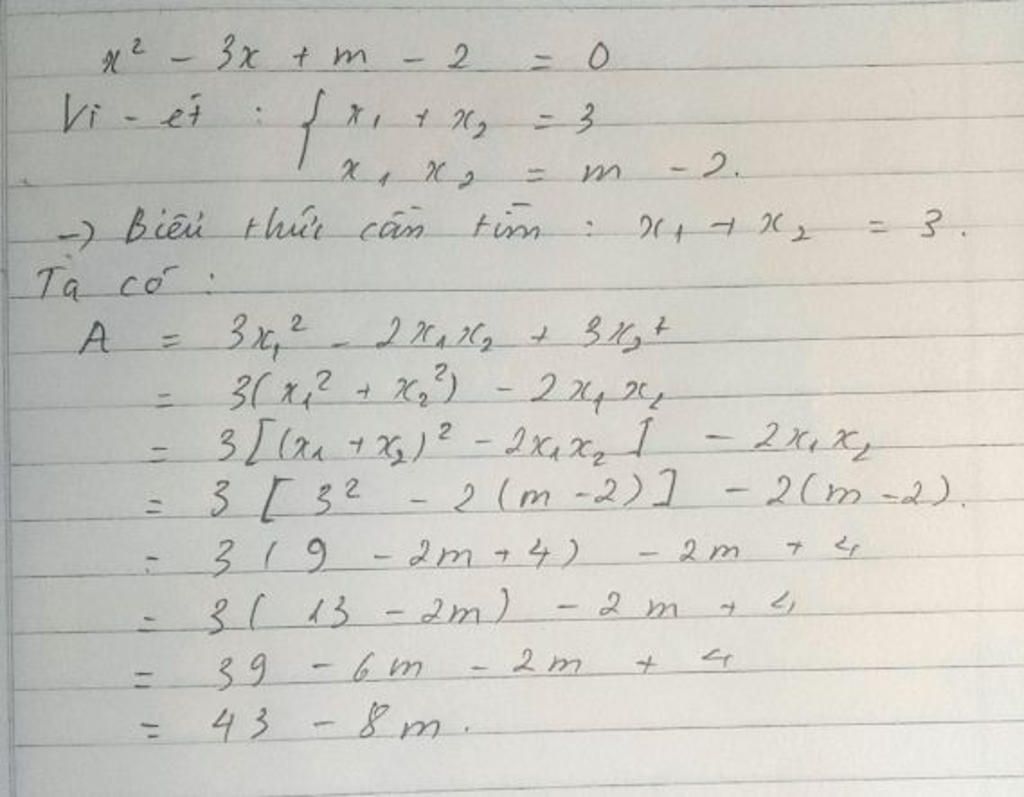 x² - 3x + m - 2 = 0
Vi-ét : { x₁ + x₂ = 3
x₁ x₂ = m - 2.
→ Biểu thức cần tìm : x₁ + x₂ = 3.
Ta có :
A = 3x₁² - 2x₁x₂ + 3x₂²
= 3(x₁² + x₂²) - 2x₁x₂
= 3[(x₁ + x₂)² - 2x₁x₂] - 2x₁x₂
= 3[3² - 2(m - 2)] - 2(m - 2).
= 3(9 - 2m + 4) - 2m + 4
= 3(13 - 2m) - 2m + 4
= 39 - 6m - 2m + 4
= 43 - 8m.